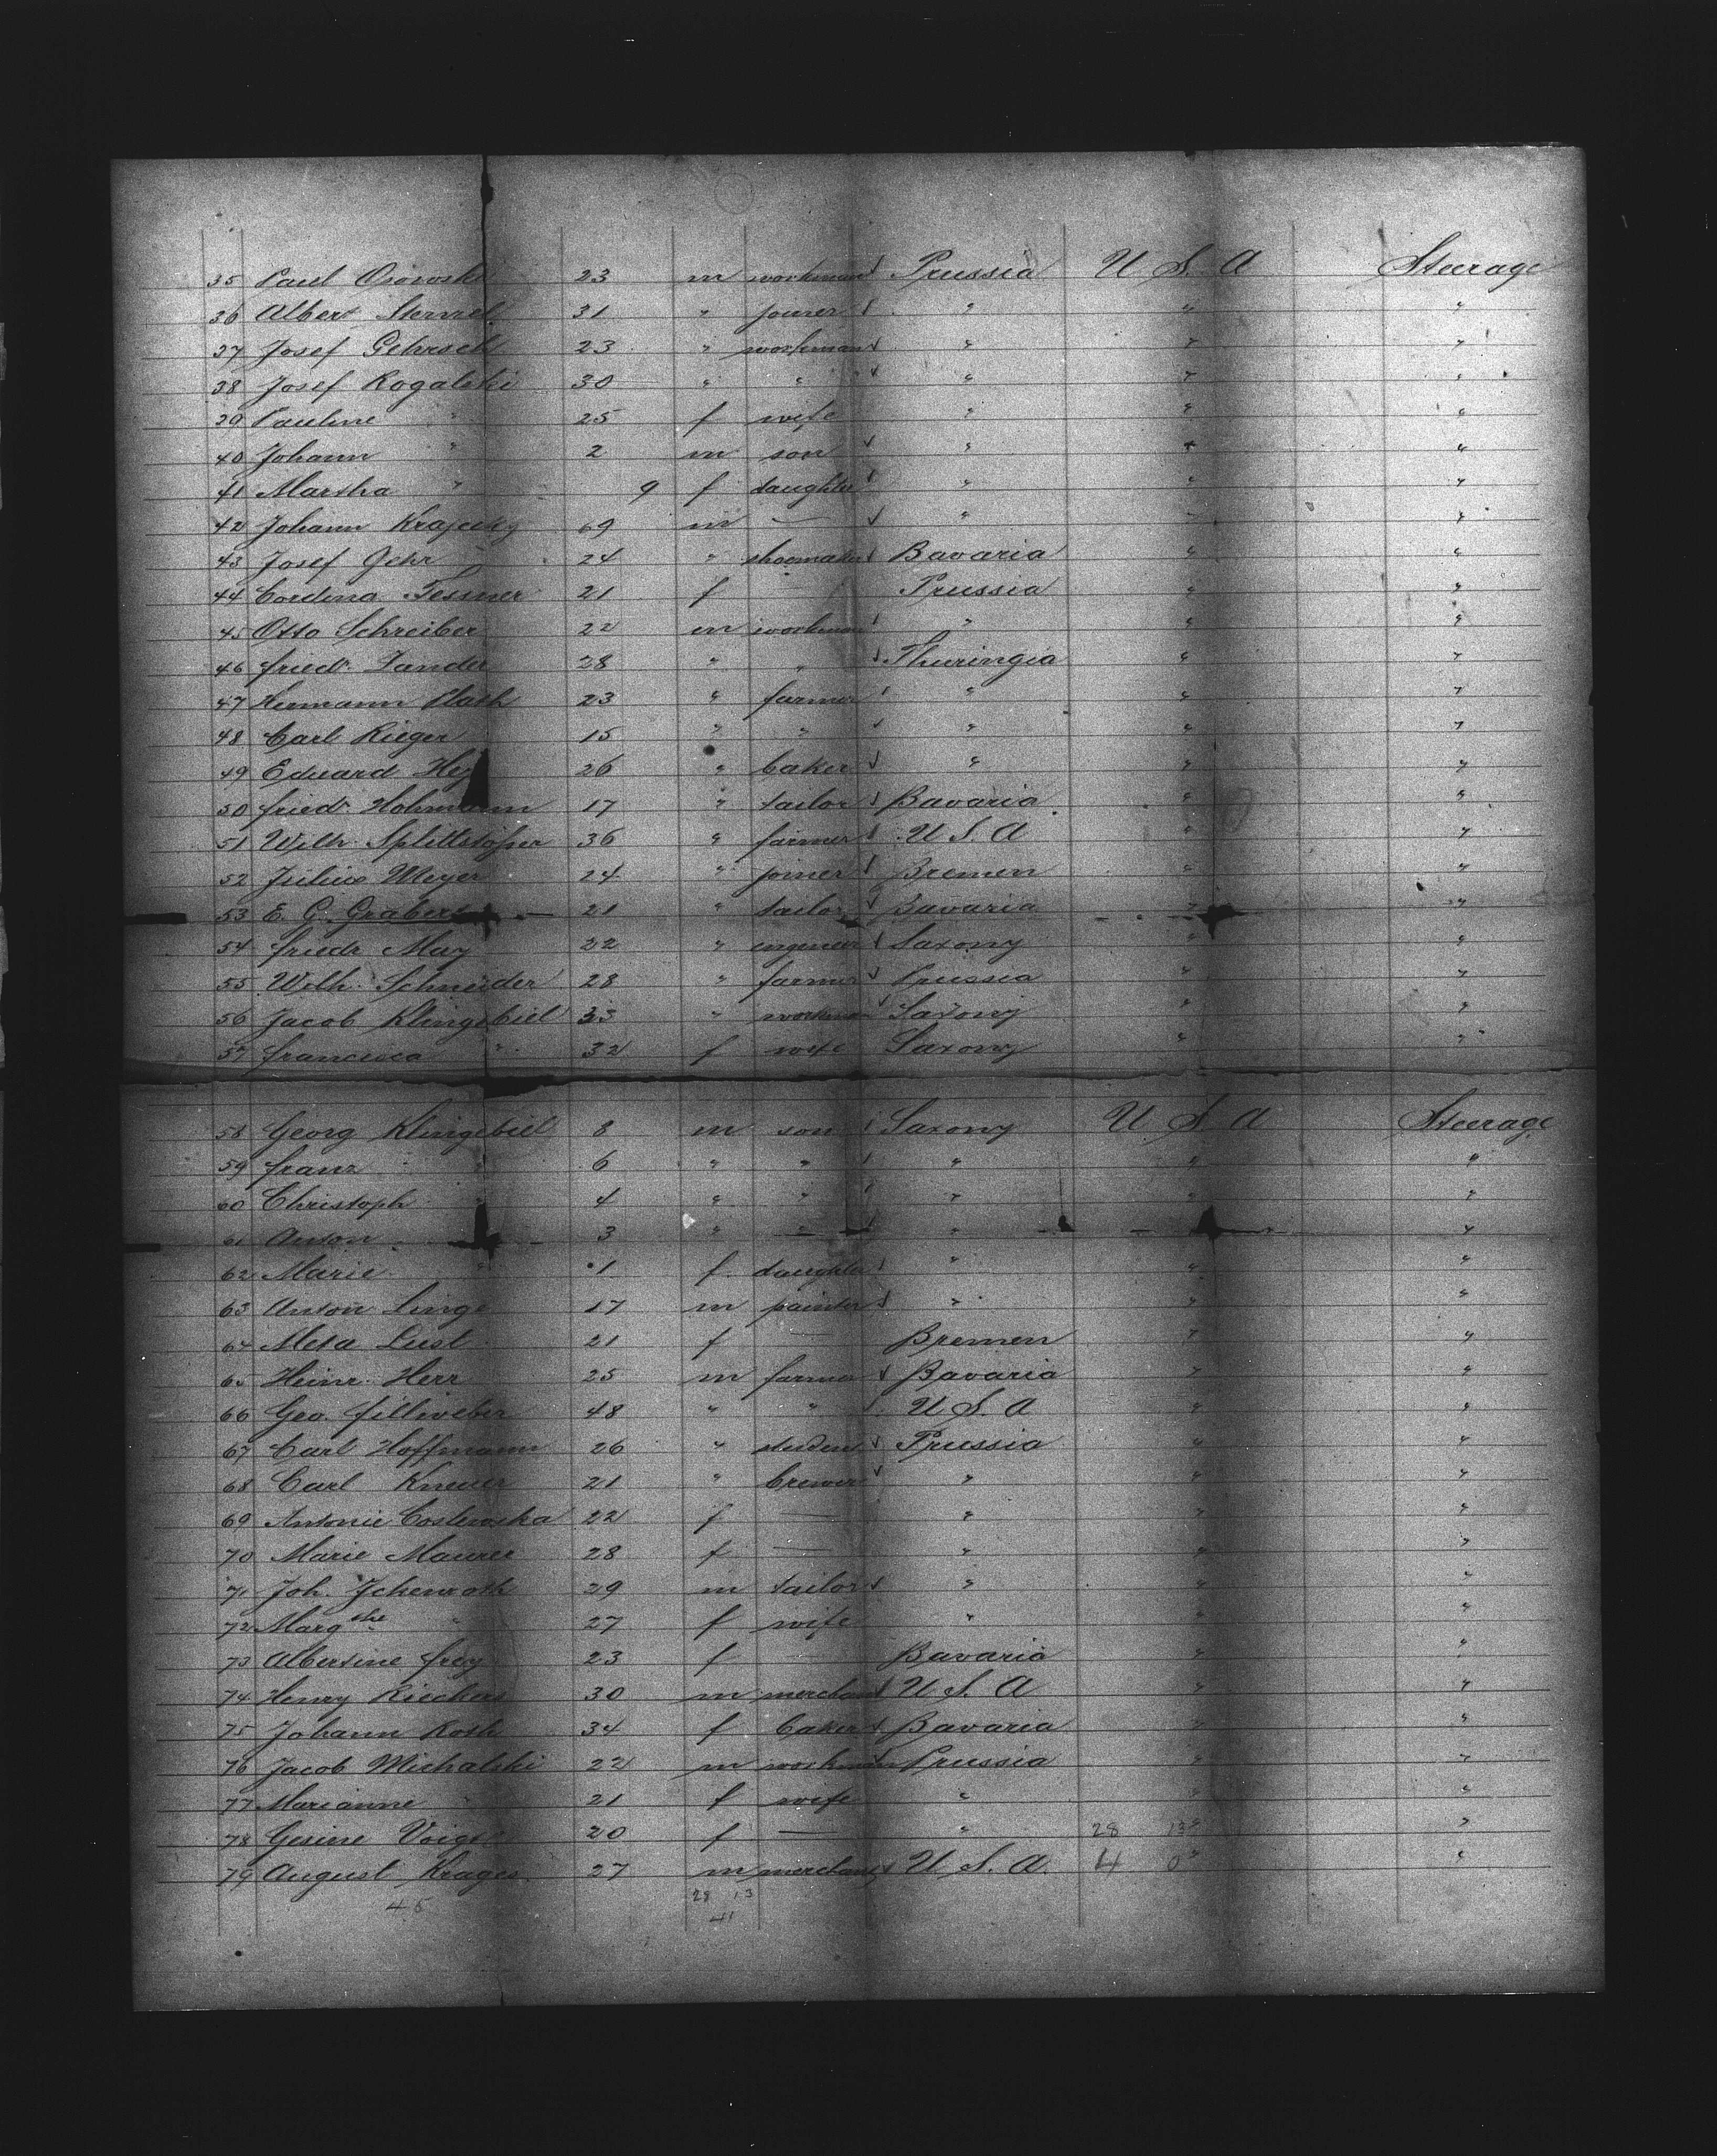 35 Paul Osowski 23 m workman Prussia U S. A Steerage
36 Albert Stenzel 31 " joiner " " "
37 Josef 23 " workman " " "
38 Josef Rogalski 30 " " " " "
39 Pauline " 25 f wife " " "
40 Johann " 2 m son " " "
41 Martha " 9 f daughter " " "
42 Johann 69 m — " " "
43 Josef Gehr 24 " shoemaker Bavaria " "
44 Cordina Tessmer 21 f Prussia " "
45 Otto Schreiber 22 m workman " " "
46 Friedr. Zander 28 " " Thuringia " "
47 Hermann Plath 23 " farmer " " "
48 Carl Rieger 15 " " " " "
49 Eduard 26 " baker " " "
50 Friedr. Hohmann 17 " tailor Bavaria " "
51 Wilh. Splittstösser 36 " farmer U S. A " "
52 Julius Meyer 24 " joiner Bremen " "
53 E. G. 21 " tailor Bavaria " "
54 Friedr. May 22 " engineer Saxony " "
55 Wilh. Schneider 28 " farmer Prussia " "
56 Jacob Klingebiel 33 " workman Saxony " "
57 Francisca " 32 f wife Saxony " "
58 Georg Klingebiel 8 m son Saxony U S A Steerage
59 Franz " 6 " " " " "
60 Christoph " 4 " " " " "
61 Anton " 3 " " " " "
62 Marie " 1 f daughter " " "
63 Anton Linge 17 m painter " " "
64 Meta Lust 21 f — Bremen " "
65 Heinr. Herr 25 m farmer Bavaria " "
66 Geo. Filliweber 48 " " U S. A " "
67 Carl Hoffmann 26 " student Prussia " "
68 Carl Kneuer 21 " brewer " " "
69 Antonie Costewska 22 f — " " "
70 Marie Maurer 28 f — " " "
71 Joh. Ichenroth 29 m tailor " " "
72 Marg the " 27 f wife " " "
73 Albertine Frey 23 f Bavaria " "
74 Henry Riechers 30 m merchant U S. A " "
75 Johann Roth 34 f baker Bavaria " "
76 Jacob Michalski 22 m workman Prussia " "
77 Marianne " 21 f wife " " "
78 Gesiene Voigt 20 f — " 28 13 "
79 August Krages 27 m merchant U S. A 4 0 "
45 28 13
41